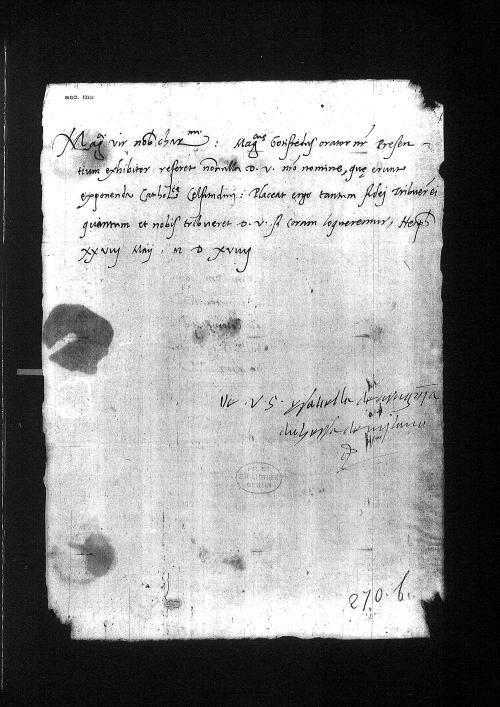 Mag.ce vir nob. char.me : Mag.cus Gotifredus orator nr. presen-
tium exhibitor referet nonnulla D. V. nro nomine, que erunt
exponenda Catholice Celsitudini : Placeat ergo tantum fidei tribuere ei
quantum et nobis tribueret D. V. si coram loqueremur,
XXVIIIJ Maij . M D XVIIIJ
De . V S . ysabella de aragonia
duchessa de milano
PR. ST.
BIBLIOTHEK
BERLIN
270. b.